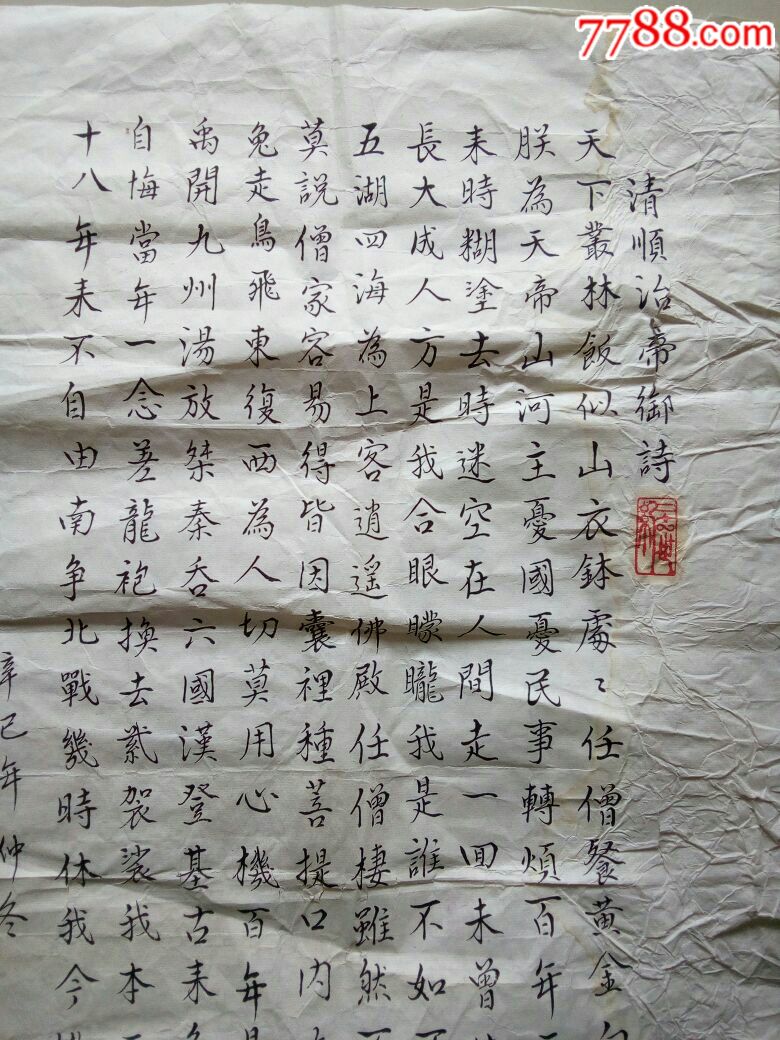 7788.com
清順治帝御詩
天下叢林飯似山衣鉢處〻任僧餐黃金白
朕為天帝山河主憂國憂民事轉煩百年
来時糊塗去時迷空在人間走一回未曾
長大成人方是我合眼矇矓我是誰不如
五湖四海為上客逍遥佛殿任僧棲雖然
莫說僧家容易得皆因囊裡種菩提口内
兔走鳥飛東復西為人切莫用心機百年
禹開九州湯放桀秦吞六國漢登基古来
自悔當年一念差龍袍換去紫袈裟我本
十八年来不自由南争北戰幾時休我今
辛巳年仲冬